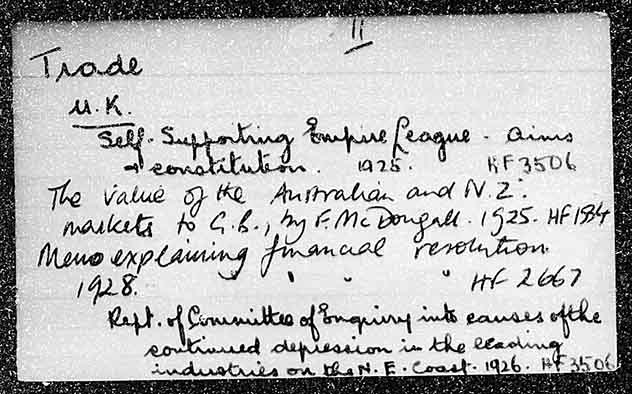 11
Trade
U.K.
Self-Supporting Empire League - aims
+ constitution. 1925. HF 3506
The value of the Australian and N.Z.
markets to G.B., by F. McDougall. 1925. HF 1534
Memo explaining financial resolution
1928. " " " HF 2667
Rept. of Committee of Enquiry into causes of the
continued depression in the leading
industries on the N.E. Coast. 1926. HF 3506